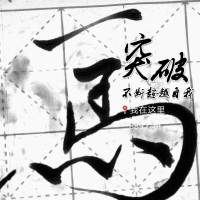 馬
突破
不断超越自我
我在这里